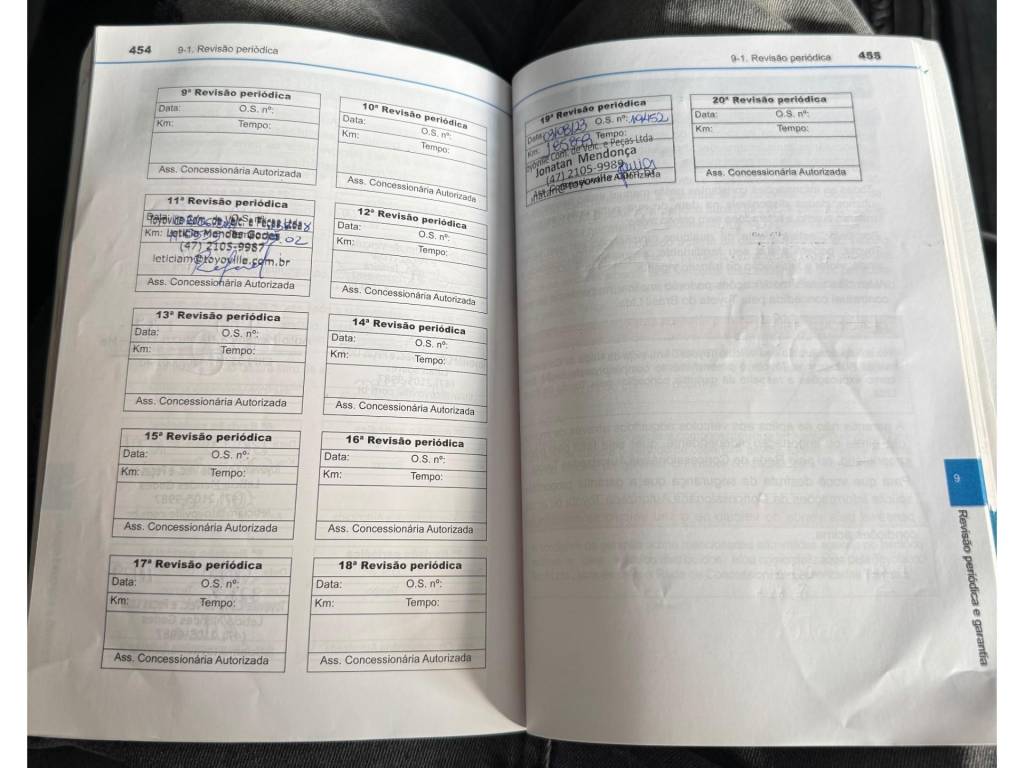 454
9-1. Revisão periódica
9ª Revisão periódica
Data: O.S. nº:
Km: Tempo:
Ass. Concessionária Autorizada
10ª Revisão periódica
Data: O.S. nº:
Km: Tempo:
Ass. Concessionária Autorizada
11ª Revisão periódica
Data: O.S. nº:
Toyoville Com. de Veic. e Peças Ltda
Km: Tempo:
Leticia Mendes Godes
(47) 2105-9987
leticiam@toyoville.com.br
Ass. Concessionária Autorizada
12ª Revisão periódica
Data: O.S. nº:
Km: Tempo:
Ass. Concessionária Autorizada
13ª Revisão periódica
Data: O.S. nº:
Km: Tempo:
Ass. Concessionária Autorizada
14ª Revisão periódica
Data: O.S. nº:
Km: Tempo:
Ass. Concessionária Autorizada
15ª Revisão periódica
Data: O.S. nº:
Km: Tempo:
Ass. Concessionária Autorizada
16ª Revisão periódica
Data: O.S. nº:
Km: Tempo:
Ass. Concessionária Autorizada
17ª Revisão periódica
Data: O.S. nº:
Km: Tempo:
Ass. Concessionária Autorizada
18ª Revisão periódica
Data: O.S. nº:
Km: Tempo:
Ass. Concessionária Autorizada
9-1. Revisão periódica
455
19ª Revisão periódica
Data: 03/08/23 O.S. nº: 19452
Km: Tempo:
Toyoville Com. de Veic. e Peças Ltda
Jonatan Mendonça
(47) 2105-9988
Ass. Concessionária Autorizada
20ª Revisão periódica
Data: O.S. nº:
Km: Tempo:
Ass. Concessionária Autorizada
9
Revisão periódica e garantia